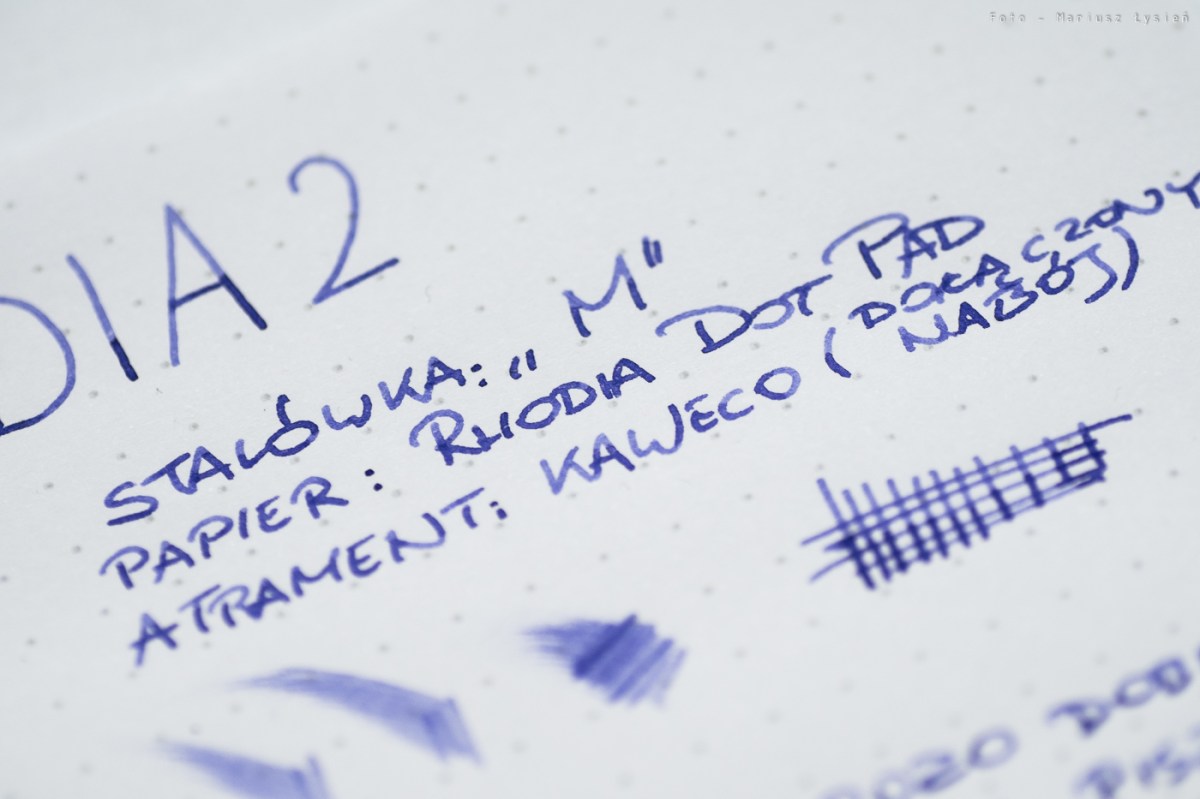 Foto - Mariusz Łysień
DIA 2
STALÓWKA: „M"
PAPIER: RHODIA DOT PAD
ATRAMENT: KAWECO (DOŁĄCZONY
NABÓJ)